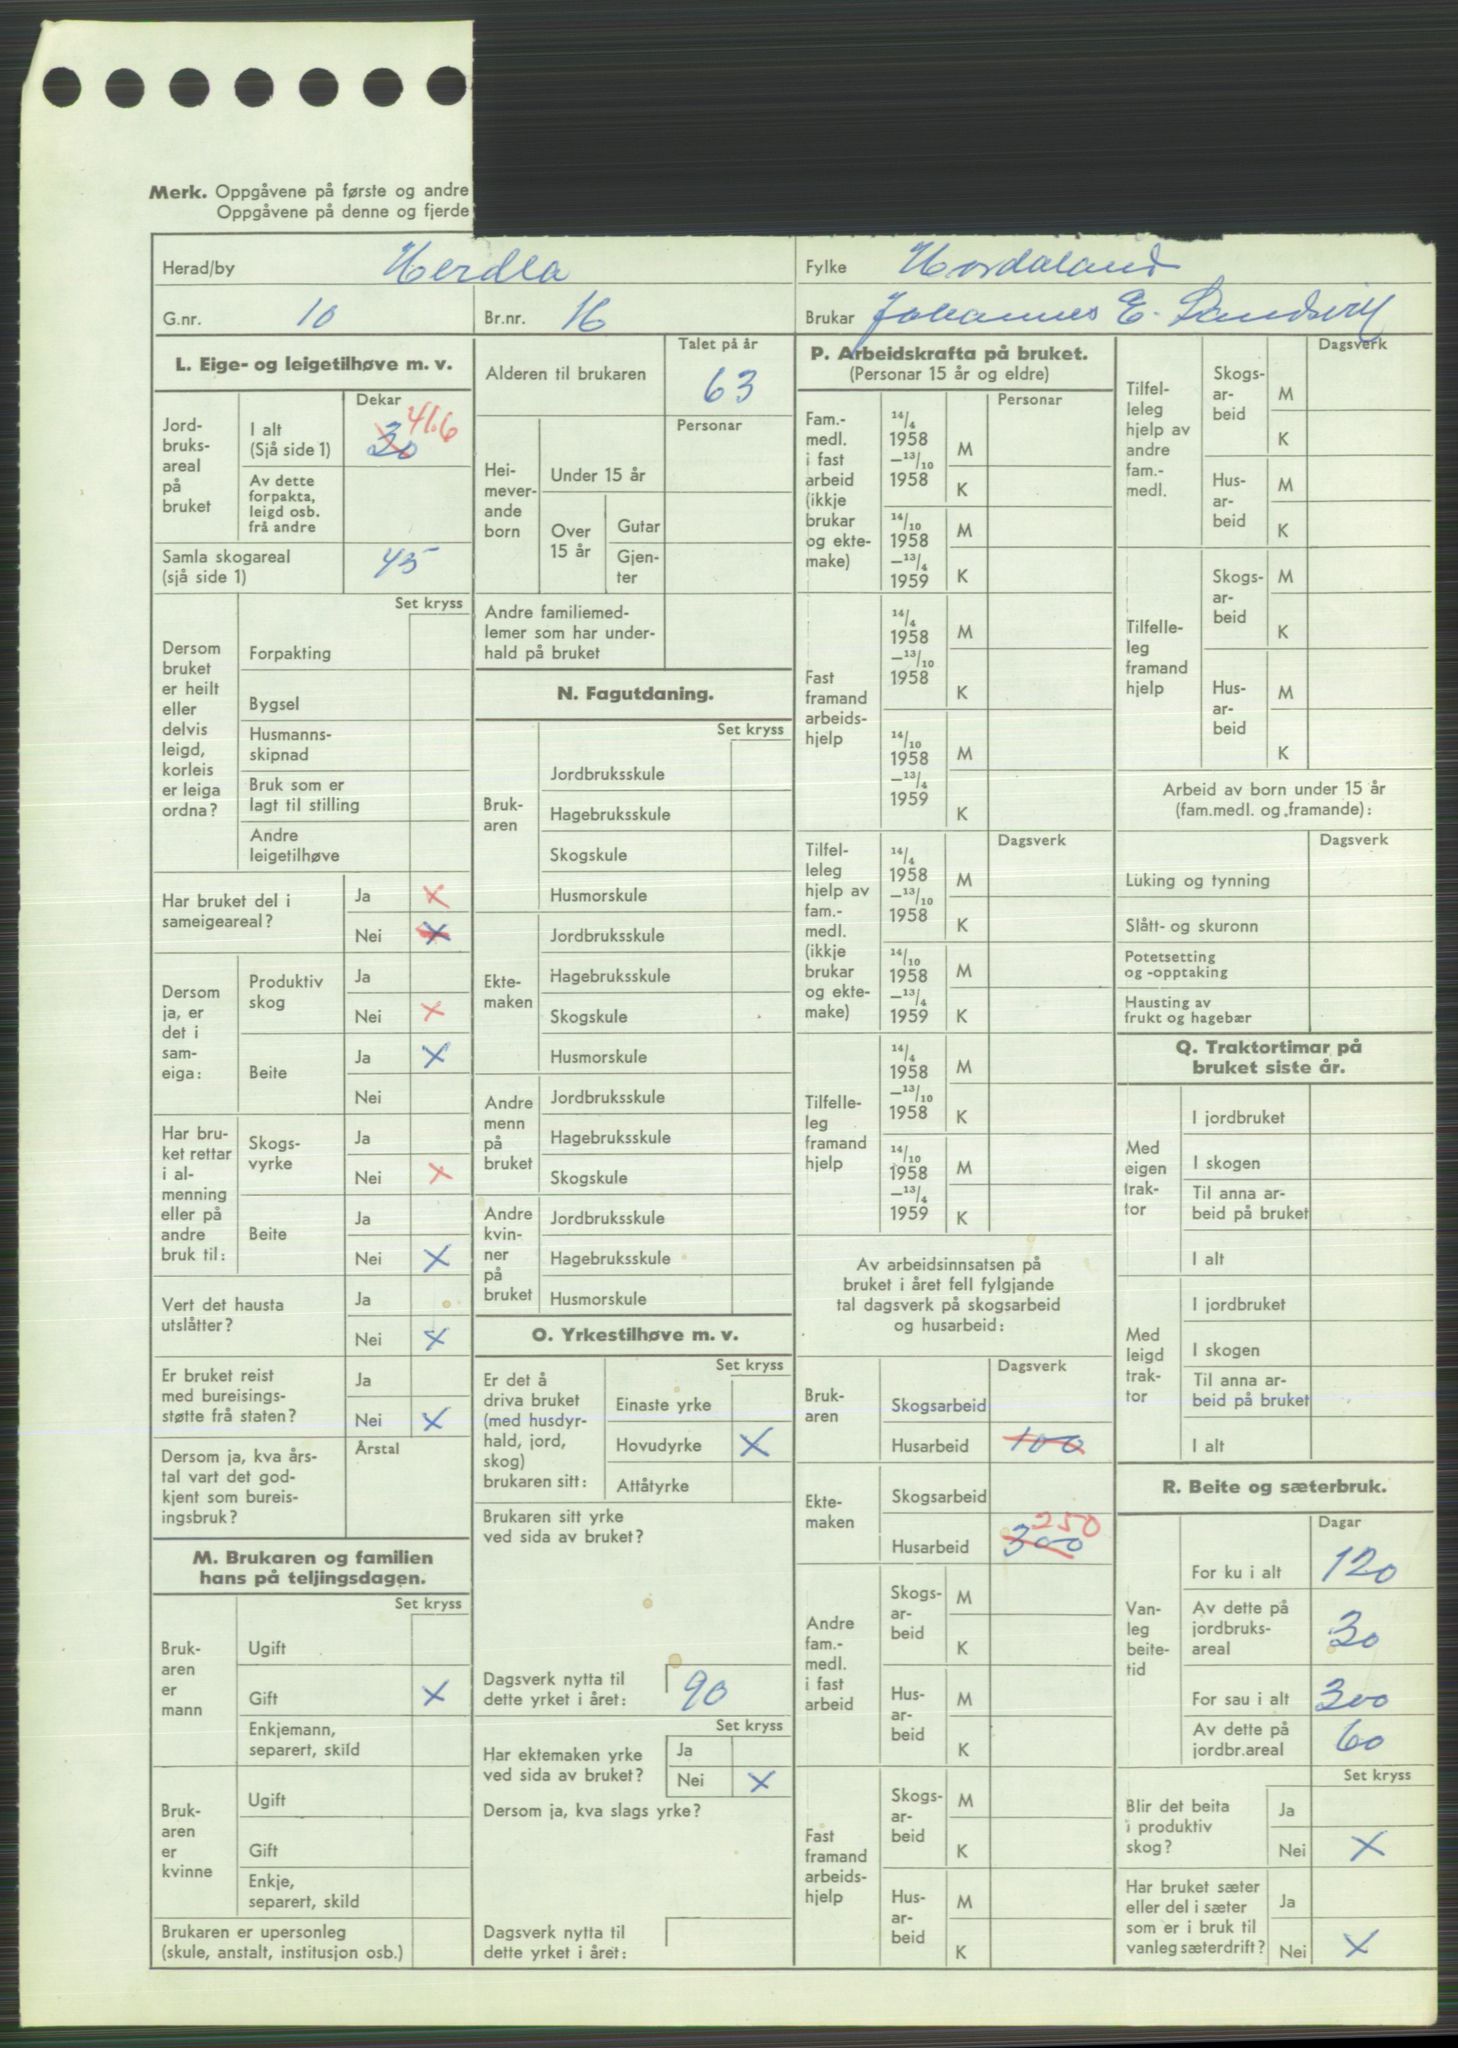 Merk. Oppgåvene på første og andre
Oppgåvene på denne og fjerde
Herad/by Herdla
Fylke Hordaland
G.nr. 10
Br.nr. 16
Brukar Johannes E. Landsvik
L. Eige- og leigetilhøve m. v.
Dekar
Jord-
bruks-
areal
på
bruket
I alt
(Sjå side 1)
30 41.6
Av dette
forpakta,
leigd osb.
frå andre
Samla skogareal
(sjå side 1)
45
Set kryss
Dersom
bruket
er heilt
eller
delvis
leigd,
korleis
er leiga
ordna?
Forpakting
Bygsel
Husmanns-
skipnad
Bruk som er
lagt til stilling
Andre
leigetilhøve
Har bruket del i
sameigeareal?
Ja X
Nei X
Dersom
ja, er
det i
sam-
eiga:
Produktiv
skog
Ja
Nei X
Beite
Ja X
Nei
Har bru-
ket rettar
i al-
menning
eller på
andre
bruk til:
Skogs-
vyrke
Ja
Nei X
Beite
Ja
Nei X
Vert det hausta
utslåtter?
Ja
Nei X
Er bruket reist
med bureisings-
støtte frå staten?
Ja
Nei X
Dersom ja, kva års-
tal vart det god-
kjent som bureis-
ingsbruk?
Årstal
M. Brukaren og familien
hans på teljingsdagen.
Set kryss
Bruk-
aren
er
mann
Ugift
Gift X
Enkjemann,
separert, skild
Bruk-
aren
er
kvinne
Ugift
Gift
Enkje,
separert, skild
Brukaren er upersonleg
(skule, anstalt, institusjon osb.)
Talet på år
Alderen til brukaren 63
Personar
Hei-
mever-
ande
born
Under 15 år
Over
15 år
Gutar
Gjen-
ter
Andre familiemed-
lemer som har under-
hald på bruket
N. Fagutdaning.
Set kryss
Bruk-
aren
Jordbruksskule
Hagebruksskule
Skogskule
Husmorskule
Ekte-
maken
Jordbruksskule
Hagebruksskule
Skogskule
Husmorskule
Andre
menn
på
bruket
Jordbruksskule
Hagebruksskule
Skogskule
Andre
kvin-
ner
på
bruket
Jordbruksskule
Hagebruksskule
Husmorskule
O. Yrkestilhøve m. v.
Set kryss
Er det å
driva bruket
(med husdyr-
hald, jord,
skog)
brukaren sitt:
Einaste yrke
Hovudyrke X
Attåtyrke
Brukaren sitt yrke
ved sida av bruket?
Dagsverk nytta til
dette yrket i året: 90
Set kryss
Har ektemaken yrke
ved sida av bruket?
Ja
Nei X
Dersom ja, kva slags yrke?
Dagsverk nytta til
dette yrket i året:
P. Arbeidskrafta på bruket.
(Personar 15 år og eldre)
Personar
Fam.-
medl.
i fast
arbeid
(ikkje
brukar
og ekte-
make)
14/4
1958
–13/10
1958
M
K
14/10
1958
–13/4
1959
M
K
Fast
framand
arbeids-
hjelp
14/4
1958
–13/10
1958
M
K
14/10
1958
–13/4
1959
M
K
Dagsverk
Tilfel-
leleg
hjelp av
fam.-
medl.
(ikkje
brukar
og ekte-
make)
14/4
1958
–13/10
1958
M
K
14/10
1958
–13/4
1959
M
K
Tilfelle-
leg
framand
hjelp
14/4
1958
–13/10
1958
M
K
14/10
1958
–13/4
1959
M
K
Av arbeidsinnsatsen på
bruket i året fell fylgjande
tal dagsverk på skogsarbeid
og husarbeid:
Dagsverk
Bruk-
aren
Skogsarbeid
Husarbeid 100
Ekte-
maken
Skogsarbeid
Husarbeid 300 250
Andre
fam.-
medl.
i fast
arbeid
Skogs-
ar-
beid
M
K
Hus-
ar-
beid
M
K
Fast
framand
arbeids-
hjelp
Skogs-
ar-
beid
M
K
Hus-
ar-
beid
M
K
Dagsverk
Tilfel-
leleg
hjelp av
andre
fam.-
medl.
Skogs-
ar-
beid
M
K
Hus-
ar-
beid
M
K
Tilfelle-
leg
framand
hjelp
Skogs-
ar-
beid
M
K
Hus-
ar-
beid
M
K
Arbeid av born under 15 år
(fam.medl. og framande):
Dagsverk
Luking og tynning
Slått- og skuronn
Potetsetting
og -opptaking
Hausting av
frukt og hagebær
Q. Traktortimar på
bruket siste år.
Med
eigen
trak-
tor
I jordbruket
I skogen
Til anna ar-
beid på bruket
I alt
Med
leigd
trak-
tor
I jordbruket
I skogen
Til anna ar-
beid på bruket
I alt
R. Beite og sæterbruk.
Dagar
Van-
leg
beite-
tid
For ku i alt 120
Av dette på
jordbruks-
areal
30
For sau i alt 300
Av dette på
jordbr.areal
60
Set kryss
Blir det beita
i produktiv
skog?
Ja
Nei X
Har bruket sæter
eller del i sæter
som er i bruk til
vanleg sæterdrift?
Ja
Nei X